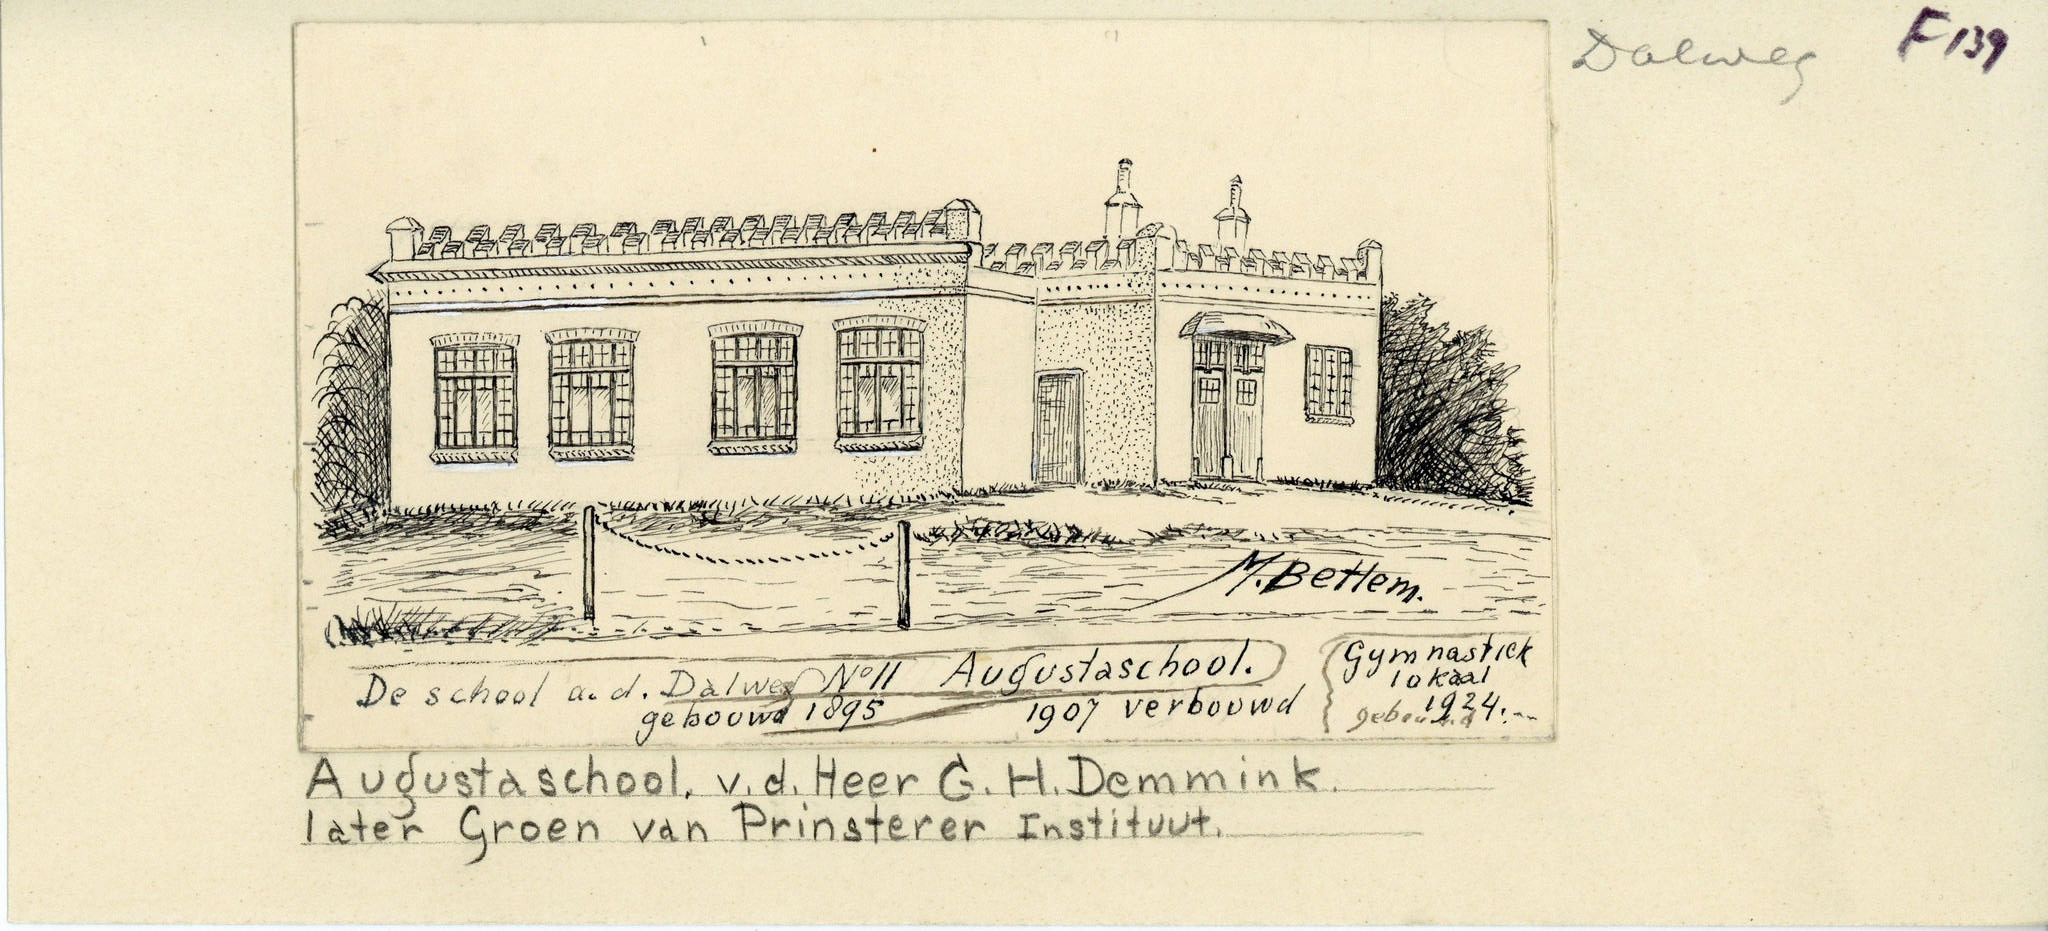 Dalweg
F 139
M. Betlem.
De school a. d. Dalweg No 11 Augustaschool.
gebouwd 1895 1907 verbouwd
Gymnastiek
lokaal
gebouwd 1924.
Augustaschool. v. d. Heer G. H. Demmink.
later Groen van Prinsterer Instituut.